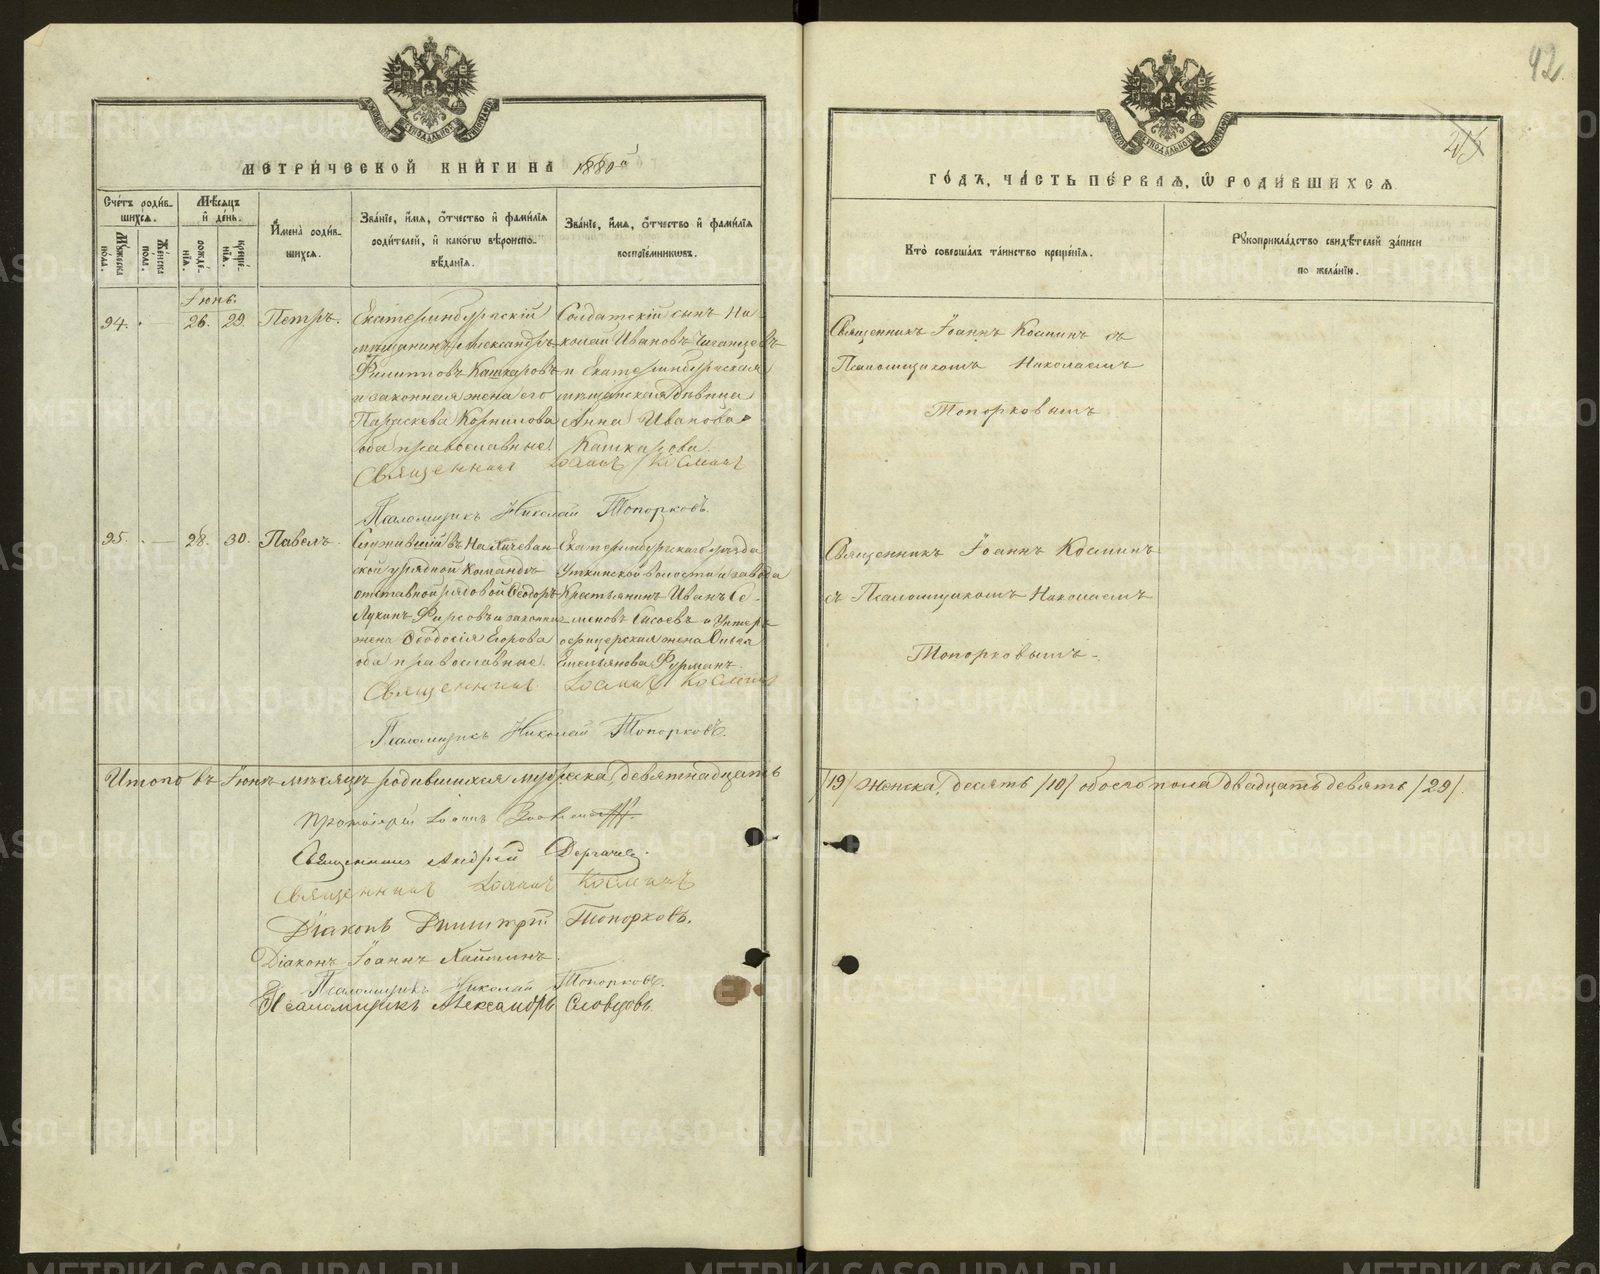 42
МЕТРИ́ЧЕСКОЙ КНИ́ГИ НА 1880й
ГО́ДЪ, ЧА́СТЬ ПЕ́РВАѦ, Ѡ҆ РОДИ́ВШИХСѦ.
Сче́тъ роди́в-
шихсѧ.
Мꙋжеска по́ла.
Же́нска по́ла.
Мѣсѧцъ
и҆ де́нь.
рожде́-
нїѧ.
креще́-
нїѧ.
И҆мена̀ роди́в-
шихсѧ.
Зва́нїе, и҆́мѧ, ѻ҆́тчество и҆ фами́лїѧ
роди́телей, и҆ како́гѡ вѣроиспо-
вѣ́данїѧ.
Зва́нїе, и҆́мѧ, ѻ҆́тчество и҆ фами́лїѧ
воспрїе́мникѡвъ.
Кто̀ соверша́лъ та́инство креще́нїѧ.
Рꙋкоприкла́дство свидѣ́телей за́писи
по жела́нїю.
Іюнь.
94. - 26. 29. Петръ.
Екатеринбургскій
мѣщанинъ Александръ
Филипповъ Кашкаровъ
и законная жена его
Параскева Корнилова
оба православные.
Солдатскій сынъ Ни
колай Ивановъ
и Екатеринбургская
мѣщанская дѣвица
Анна Иванова
Кашкарова.
Священникъ Іоаннъ Косминъ съ
Псаломщикомъ Николаемъ
Топорковымъ
Священникъ Іоаннъ Косминъ
Псаломщикъ Николай Топорковъ.
95. - 28. 30. Павелъ.
Служившій въ Нахичеван
ской уѣздной Командѣ
отставной рядовой Ѳеодоръ
Лукинъ Фирсовъ и законная
жена Ѳеодосія Егорова
оба православные.
Екатеринбургскаго уѣзда
Уткинской волости и завода
Крестьянинъ Иванъ Се-
меновъ Сысоевъ и Унтеръ
офицерская жена Ольга
Емельянова Фурманъ.
Священникъ Іоаннъ Косминъ
съ Псаломщикомъ Николаемъ
Топорковымъ.
Священникъ Іоаннъ Косминъ
Псаломщикъ Николай Топорковъ.
Итого въ Іюнѣ мѣсяцѣ родившихся мужеска, девятнадцать /19/ женска, десять /10/ обоего пола двадцать девять /29/.
Протоіерей Іоаннъ
Священникъ Андрей Дергачевъ.
Священникъ Іоаннъ Косминъ
Діаконъ Димитрій Топорковъ.
Діаконъ Іоаннъ
Псаломщикъ Николай Топорковъ.
Псаломщикъ Александръ Словцовъ.
METRIKI.GASO-URAL.RU